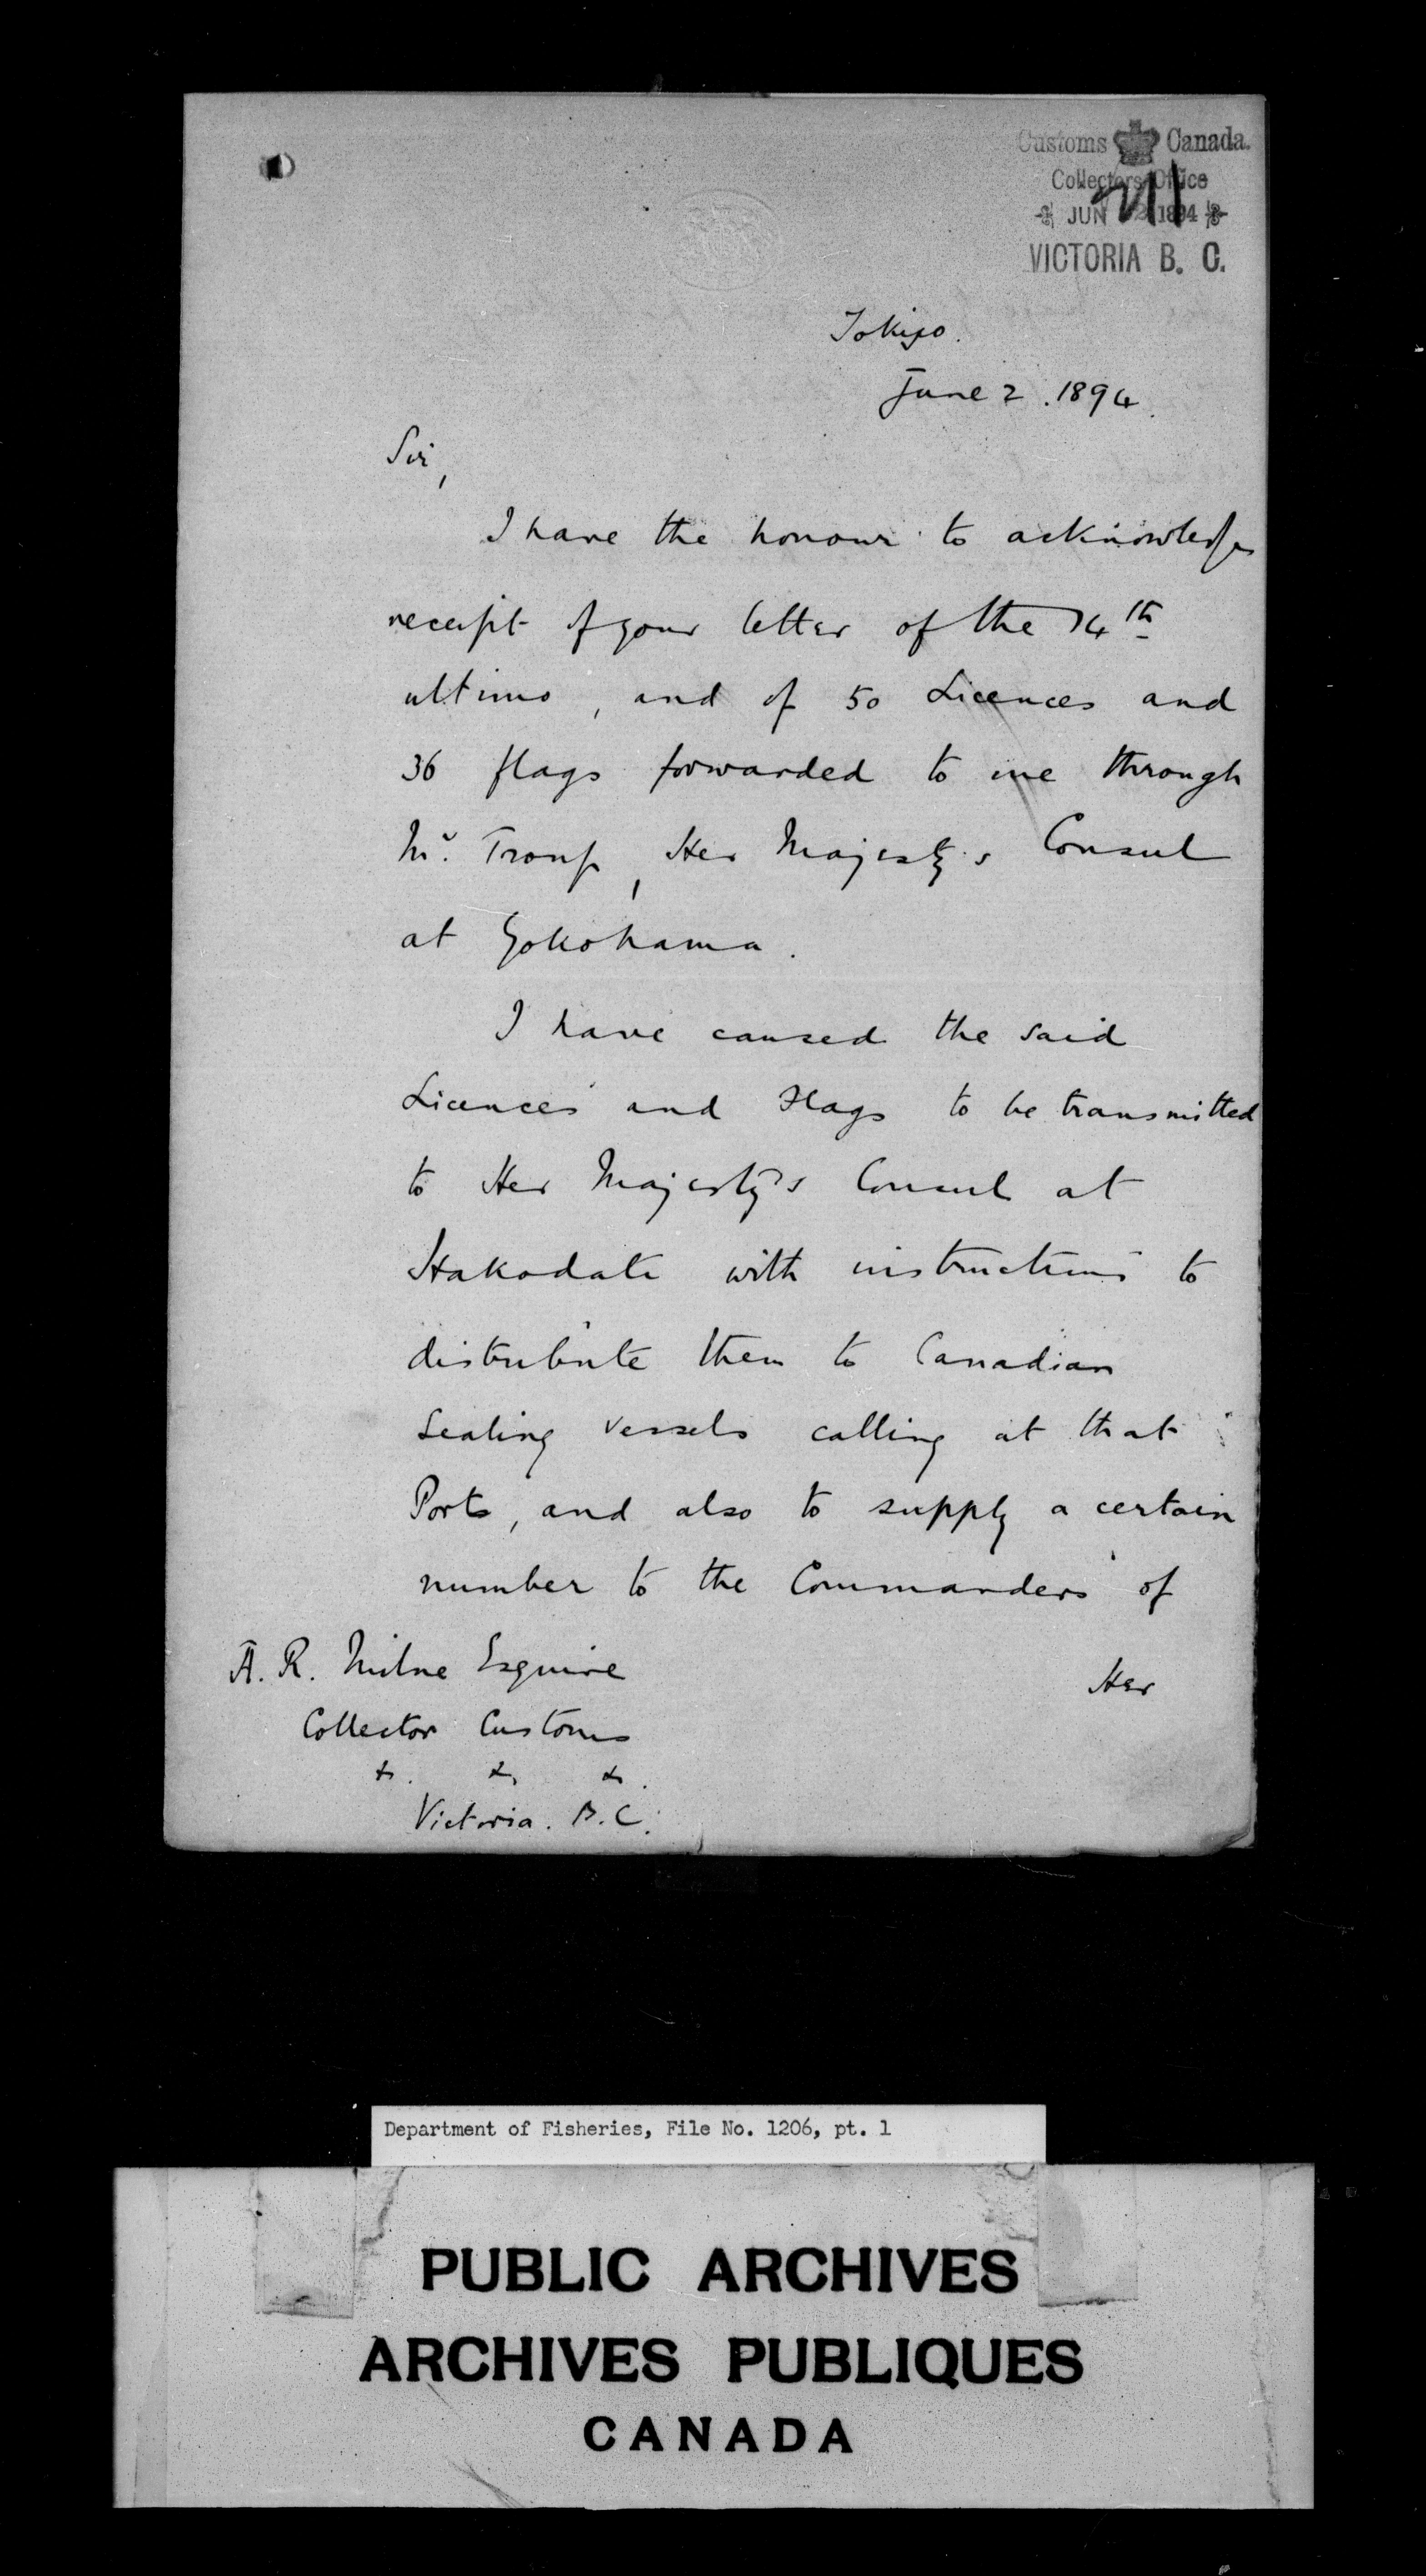 Customs Canada.
Collectors Office
JUN 1894
VICTORIA B. C.
Tokiyo.
June 2. 1894.
Sir,
I have the honour to acknowledge
receipt of your letter of the 14th
ultimo, and of 50 Licences and
36 flags forwarded to me through
Mr. Troup, Her Majesty's Consul
at Yokohama.
I have caused the said
Licences and Flags to be transmitted
to Her Majesty's Consul at
Hakodate with instructions to
distribute them to Canadian
Sealing vessels calling at that
Port, and also to supply a certain
number to the Commanders of
Her
A. R. Milne Esquire
Collector Customs
&. &. &.
Victoria. B.C.
Department of Fisheries, File No. 1206, pt. 1
PUBLIC ARCHIVES
ARCHIVES PUBLIQUES
CANADA